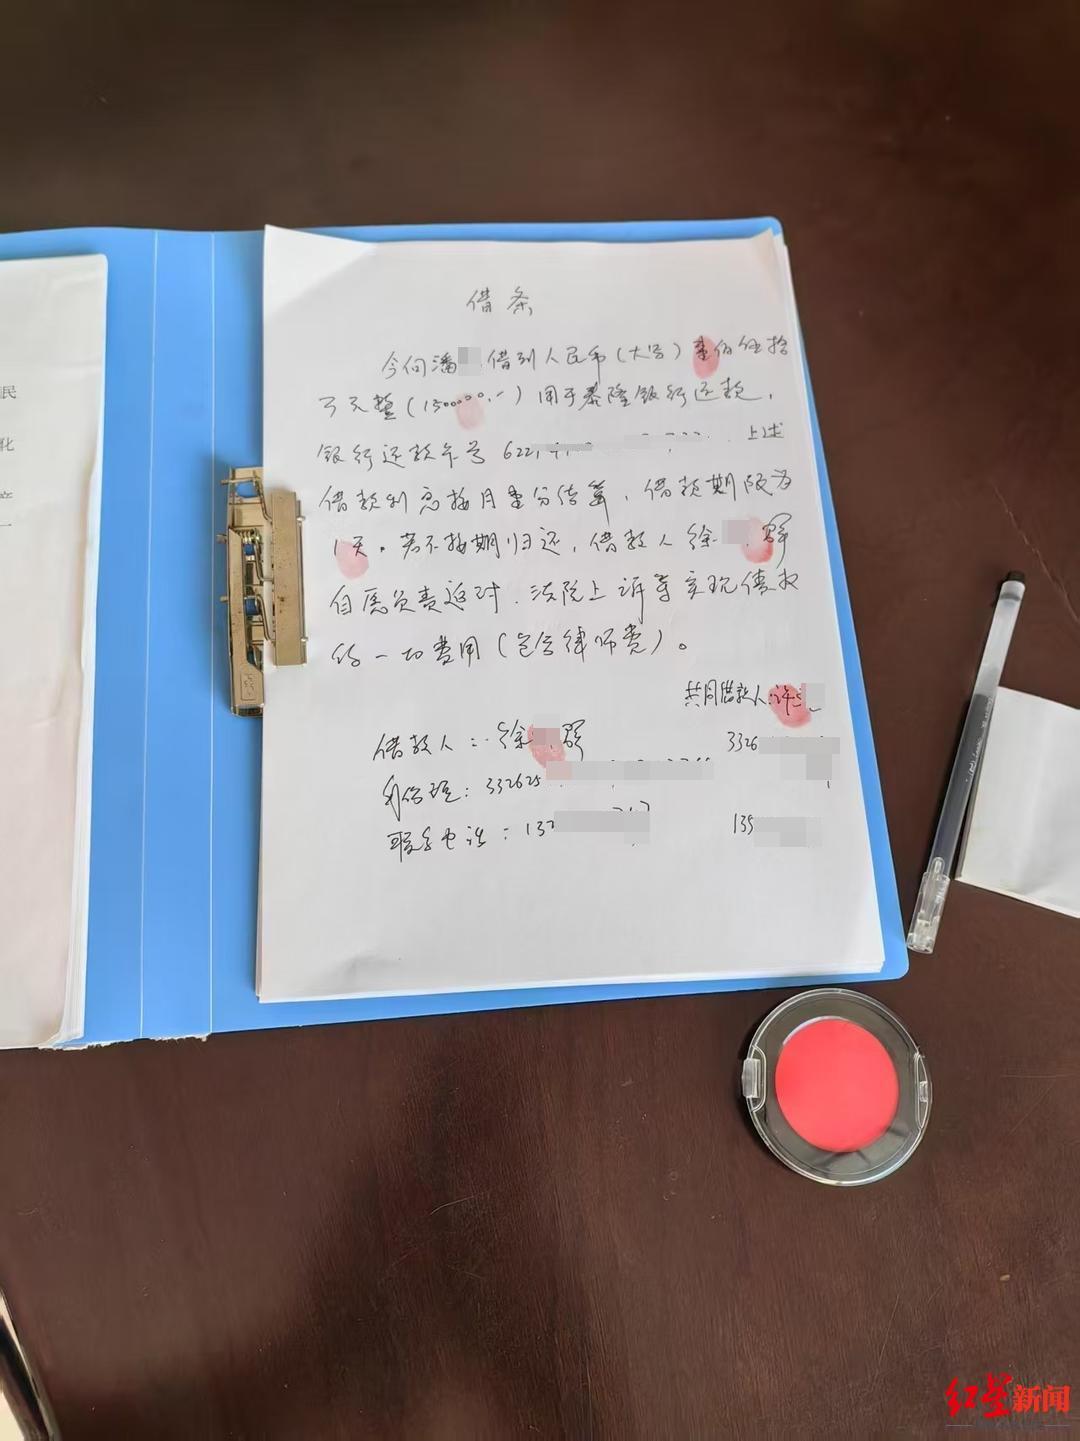 民
化
产
一
借条
今向潘 借到人民币(大写)壹佰伍拾
万元整(1500000.-)用于泰隆银行还款,
银行还款卡号 622 上述
借款利息按月壹分结算,借款期限为
1天。若不按期归还,借款人徐 群
自愿负责返对、法院上诉等实现债权
的一切费用(包含律师费)。
共同借款人:许
借款人:徐 群 3326
身份证:332625
联系电话:137 135
红星新闻